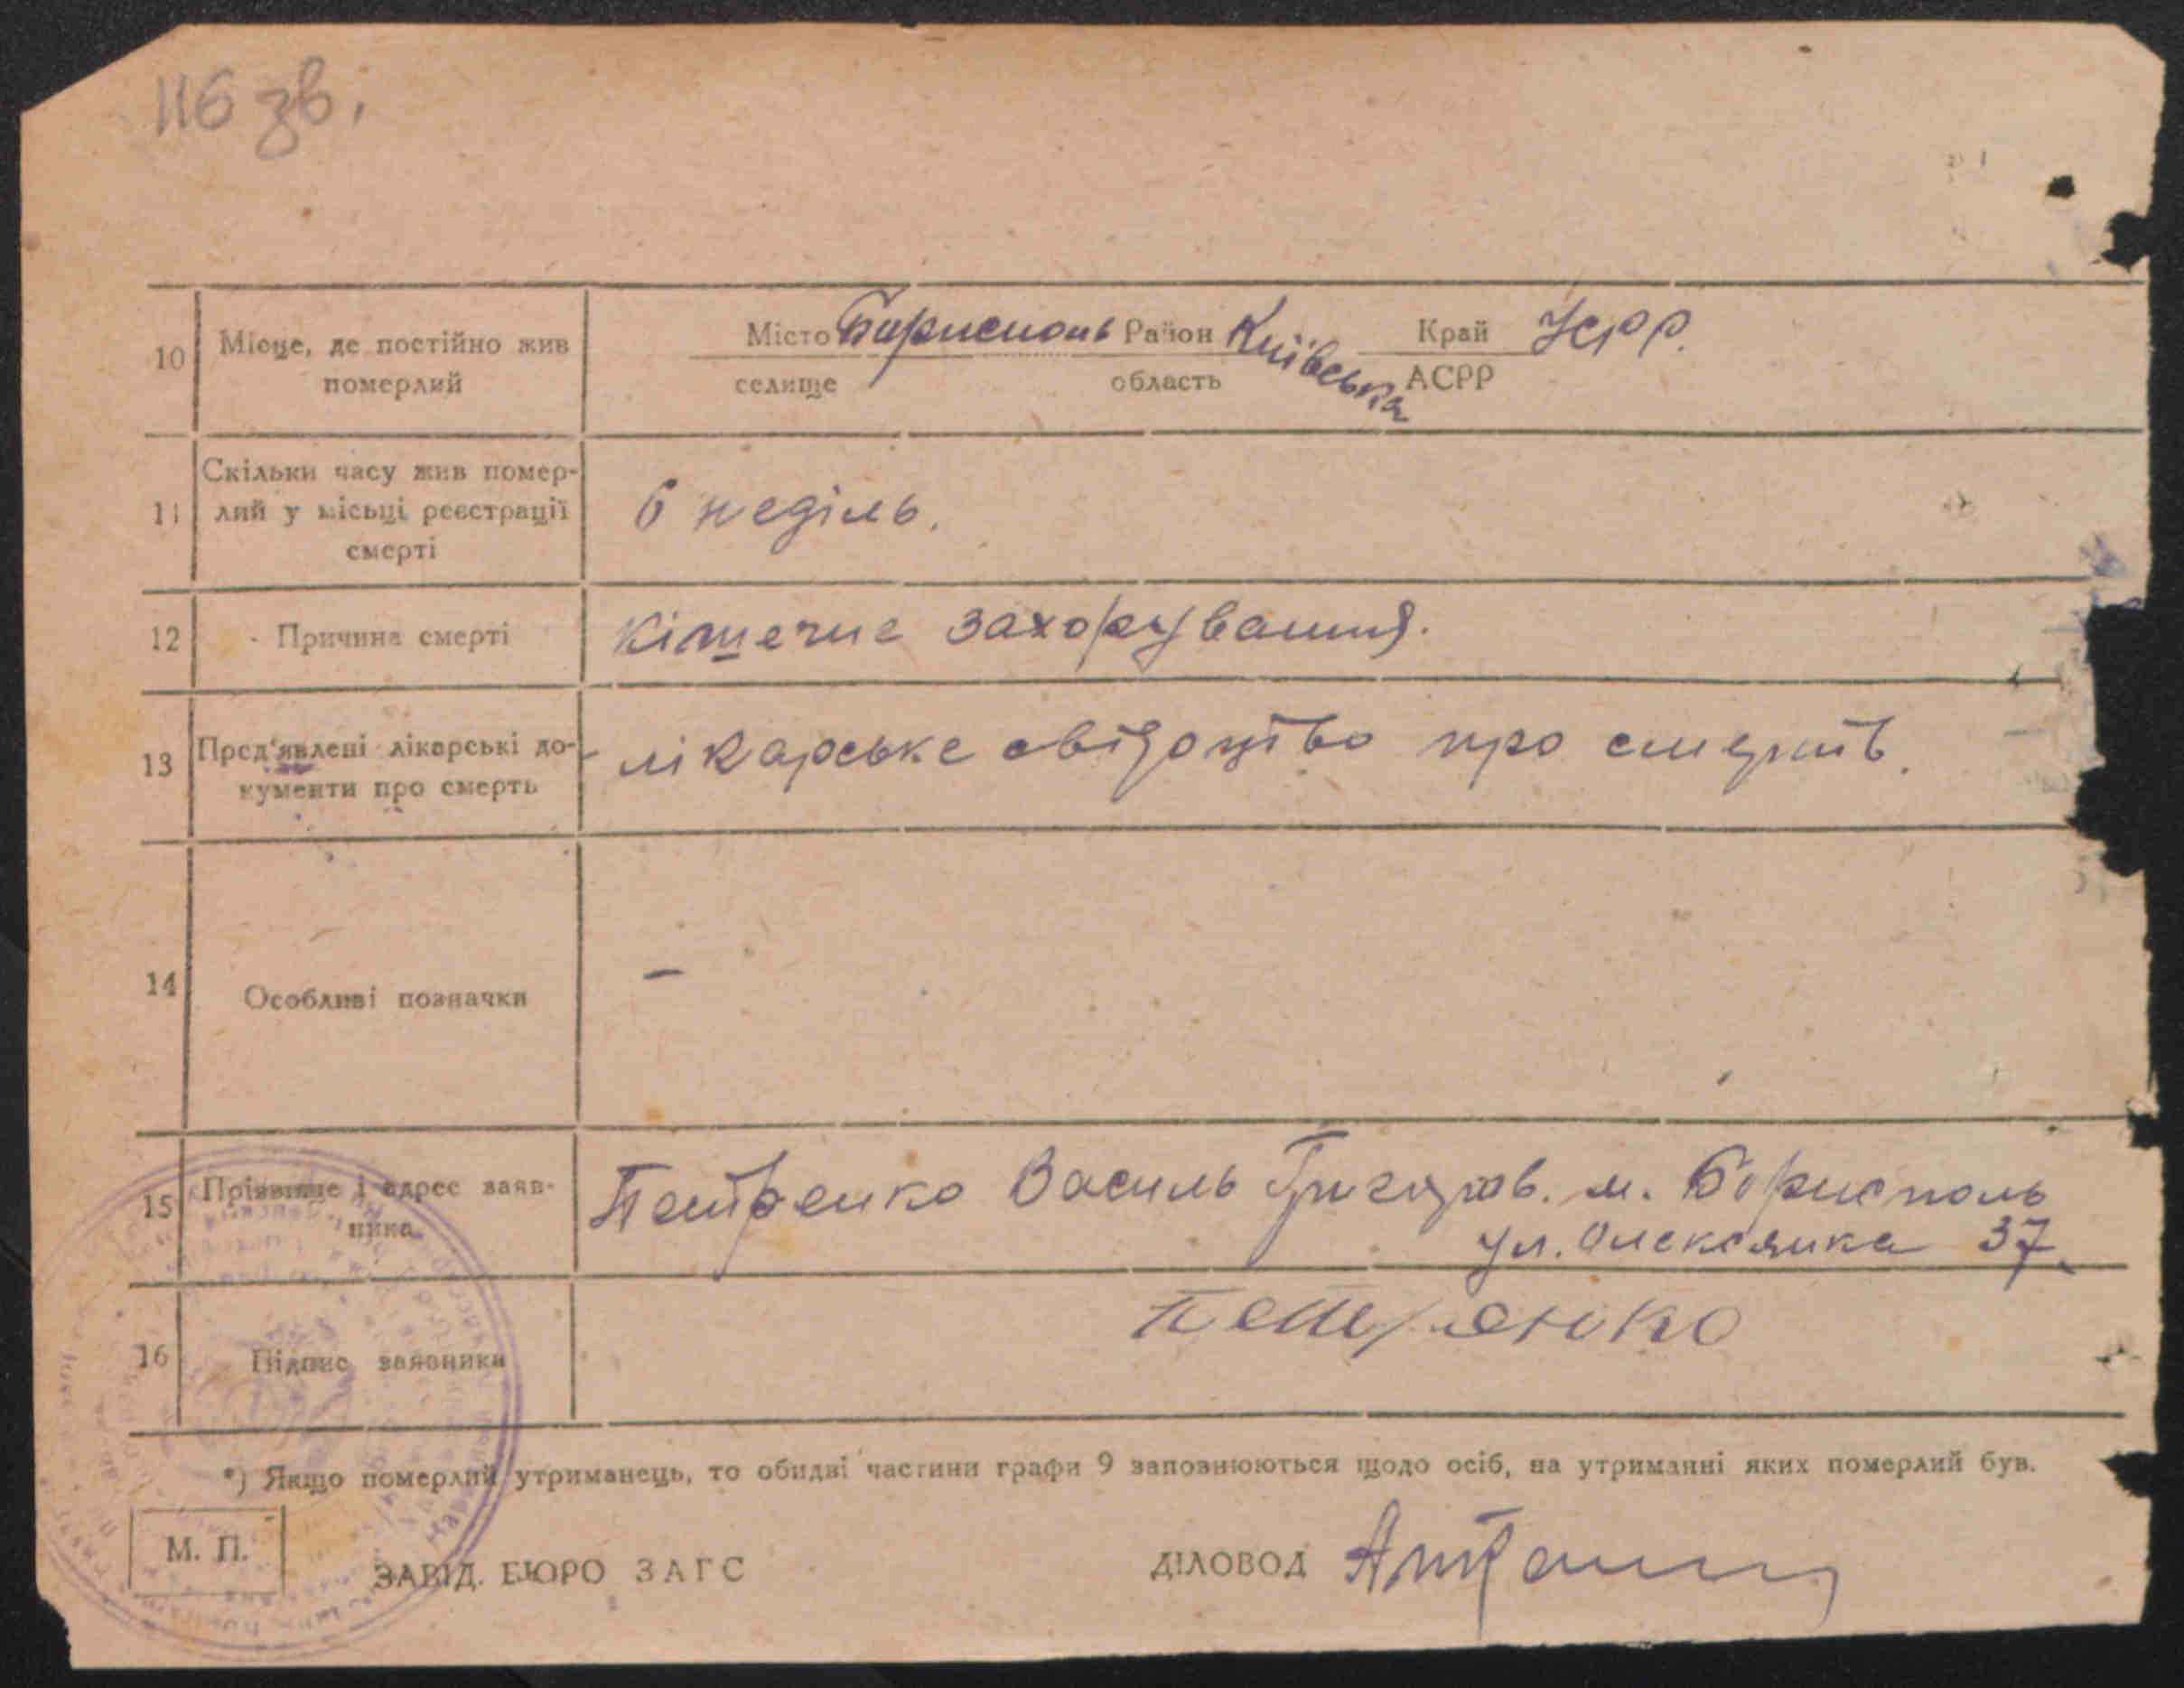 116 зв.
10 Місце, де постійно жив померлий
Місто Борисполь Район Київська Край УСРР.
селище область АСРР
11 Скільки часу жив помер-
лий у місьці реєстрації
смерті
6 неділь.
12 Причина смерті
Кішечне захорування.
13 Пред'явлені лікарські до-
кументи про смерть
лікарське свідоцтво про смерть.
14 Особливі позначки
—
15 Прізвище і адрес заяв-
ника
Петренко Василь Григоров. м. Борисполь
ул. Олексяика 37.
16 Підпис заявника
Петренко
*) Якщо померлий утриманець, то обидві частини графи 9 заповнюються щодо осіб, на утриманні яких померлий був.
М. П.
ЗАВІД. БЮРО ЗАГС
ДІЛОВОД